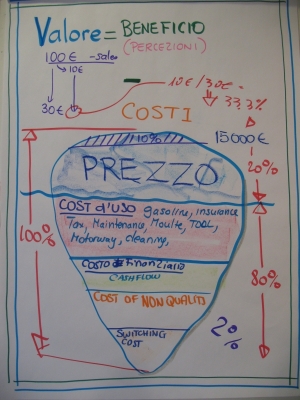 Valore = BENEFICIO
(PERCEZIONI)
100 € - sales
10€
30€
10€ / 30€ =
33,3%
COSTI
10%
15000€
PREZZO
20%
COST d'USO gasoline, insurance
Tax, Maintenance, Moulte, TOOL,
Motorway, cleaning,
100%
COSTO Finanziario
CASHFLOW
80%
COST OF NON QUALITY
2%
SWITCHING
COST